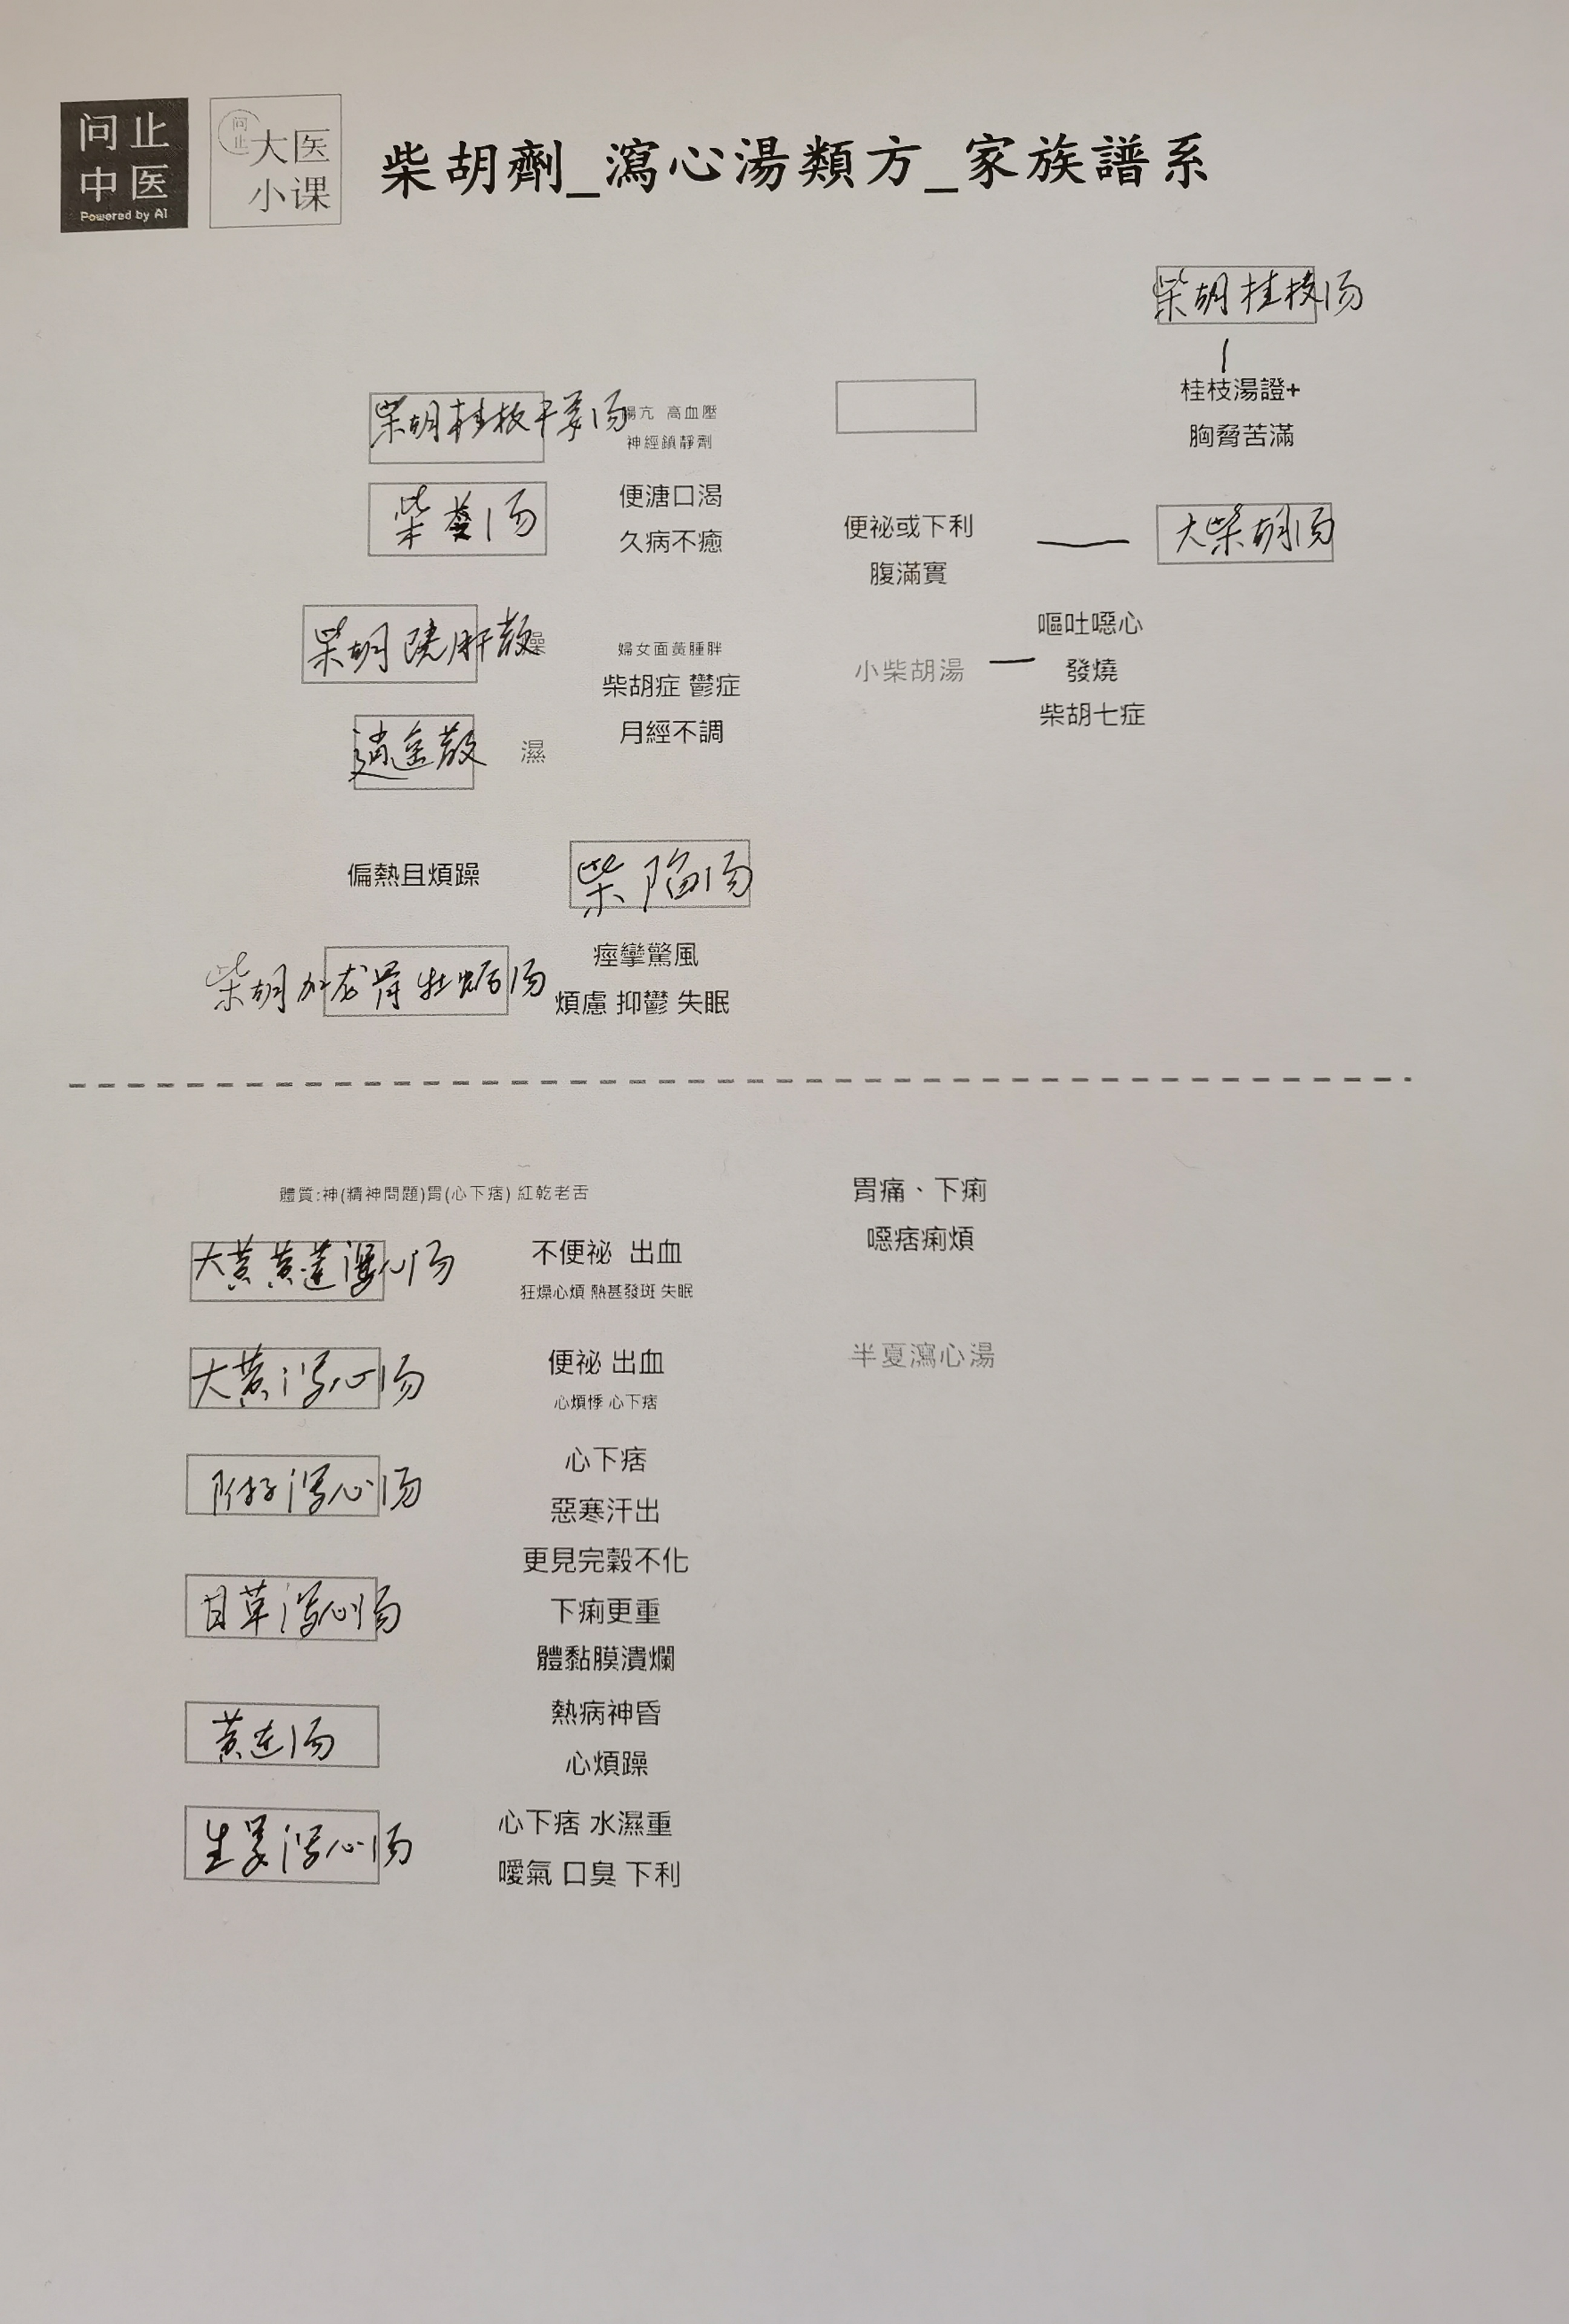 问止
中医
Powered by AI
问止
大医
小课
柴胡劑_瀉心湯類方_家族譜系
柴胡桂枝汤
桂枝湯證+
胸脅苦滿
柴胡桂枝干姜汤
陽亢 高血壓
神經鎮靜劑
柴苓汤
便溏口渴
久病不癒
便祕或下利
腹滿實
大柴胡汤
柴胡 肝散
燥
婦女面黃腫胖
柴胡症 鬱症
月經不調
小柴胡湯
嘔吐噁心
發燒
柴胡七症
逍遥散
濕
偏熱且煩躁
柴陷汤
柴胡加龙骨牡蛎汤
痙攣驚風
煩慮 抑鬱 失眠
體質:神(精神問題)胃(心下痞) 紅乾老舌
胃痛、下痢
噁痞痢煩
大黄黄莲瀉心汤
不便祕 出血
狂燥心煩 熱甚發斑 失眠
大黄泻心汤
便祕 出血
心煩悸 心下痞
半夏瀉心湯
附子泻心汤
心下痞
惡寒汗出
甘草泻心汤
更見完穀不化
下痢更重
體黏膜潰爛
黄连汤
熱病神昏
心煩躁
生姜泻心汤
心下痞 水濕重
噯氣 口臭 下利